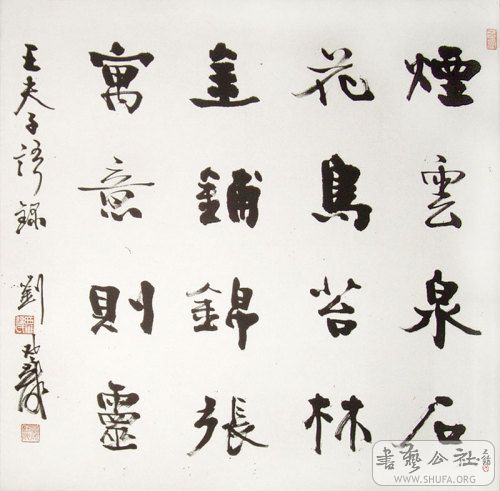 煙雲泉石
花鳥苔林
金鋪錦張
寓意則靈
王夫子語錄 劉
書藝公社
WWW.SHUFA.ORG